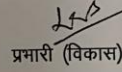 प्रभारी (विकास)